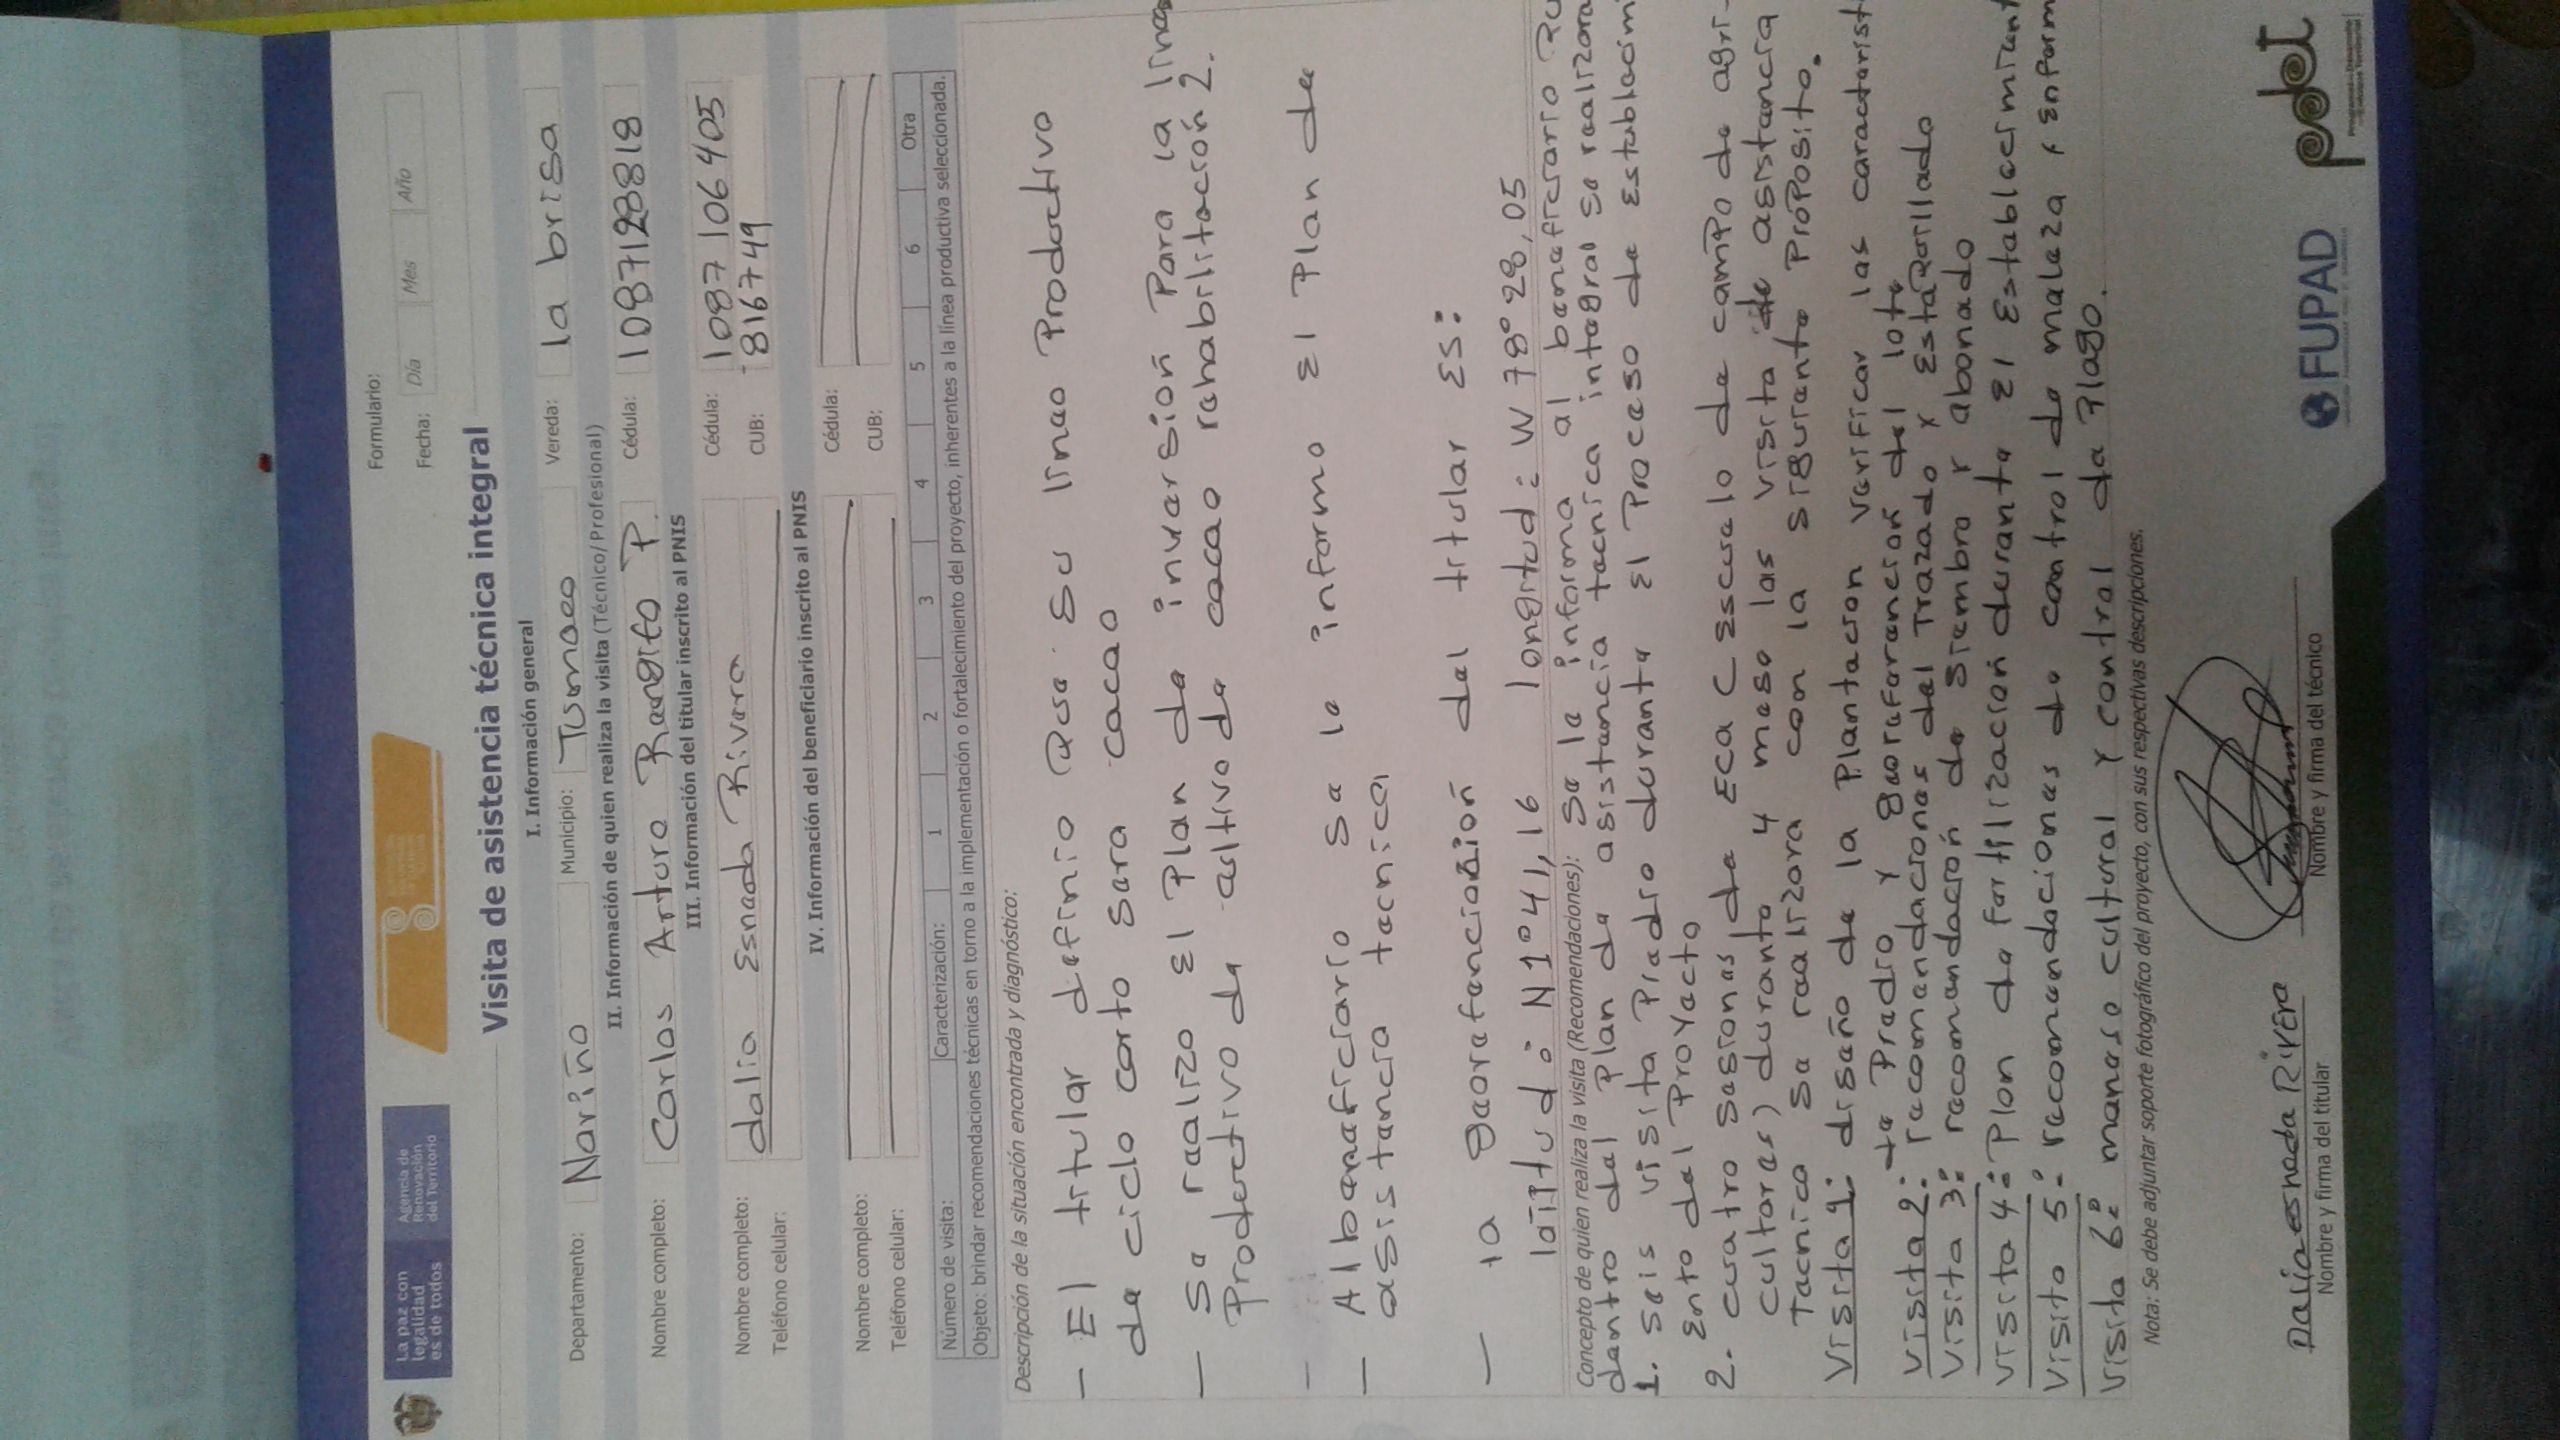 La paz con
legalidad
es de todos
Agencia de
Renovación
del Territorio
Formulario:
Fecha: Día Mes Año
Visita de asistencia técnica integral
I. Información general
Departamento: Nariño Municipio: Tumaco Vereda: la brisa
II. Información de quien realiza la visita (Técnico/Profesional)
Nombre completo: Carlos Arturo Rengifo P. Cédula: 1087128818
III. Información del titular inscrito al PNIS
Nombre completo: dalia Esneda Rivera Cédula: 1087106405
Teléfono celular: CUB: 816749
IV. Información del beneficiario inscrito al PNIS
Nombre completo: Cédula:
Teléfono celular: CUB:
Número de visita: Caracterización: 1 2 3 4 5 6 Otra
Objeto: brindar recomendaciones técnicas en torno a la implementación o fortalecimiento del proyecto, inherentes a la línea productiva seleccionada.
Descripción de la situación encontrada y diagnóstico:
— El titular definio que su linea Productivo
de ciclo corto sera cacao
— Se realizo El Plan de inversion Para la linea
Productivo de cultivo de cacao rehabilitación 2.
— Al beneficiario se le informo El Plan de
asistencia tecnica
— la georefenciación del titular ES:
latitud: N1°41,16 longitud: W 78°28,05
Concepto de quien realiza la visita (Recomendaciones): se le informa al beneficiario
dentro del Plan de asistencia tecnica integral se realizara
1. seis visita Predio durante El Proceso de Establecimi
Ento del Proyecto
2. cuatro sesiones de ECA (Escuela de campo de agri-
cultores) durante 4 mese las visita de asistencia
Tecnica se realizara con la siguiente Proposito.
Visita 1: diseño de la Plantacion verificar las caracterist
te Predio y georeferencion del lote
Visita 2: recomendaciones del Trazado y Estaquillado
Visita 3: recomendación de siembra y abonado
Visita 4: Plan de fertilización durante El Establecimient
Visita 5: recomendaciones de control de maleza y Enferm
Visita 6: manejo cultural y control de Plaga.
Nota: Se debe adjuntar soporte fotográfico del proyecto, con sus respectivas descripciones.
Dalia esneda Rivera
Nombre y firma del titular
Nombre y firma del técnico
FUPAD
pdet